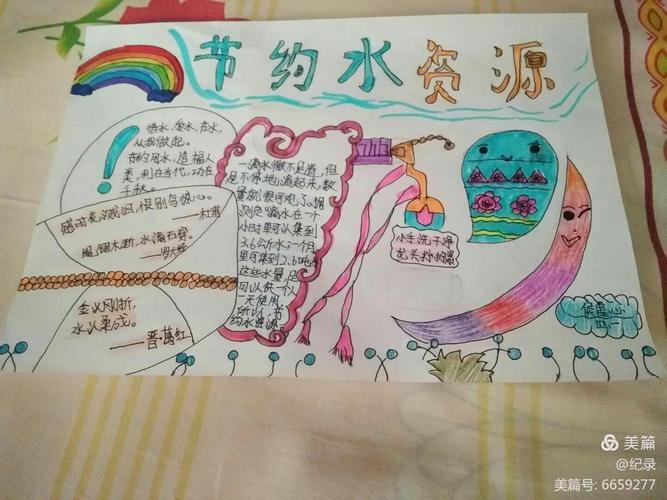 节约水资源
惜水，爱水，在水，
从我做起。
节约用水，造福人
类，利在当代，功在
千秋。
感时花溅泪，恨别鸟惊心。
——杜甫
绳锯木断，水滴石穿。
——罗大经
金以刚折，
水以柔成。
——晋·葛红
一滴水微不足道，但
是不停地滴起来，数
量就很可观了。据
测定"滴水在一个
小时里可以集到
3.6公斤水，一个月
里可集到2.6吨水
这些水量，足
可以供一个人
一天使用
所以，节
约水资源
小手洗干净
龙头拧拧紧
美篇
@纪录
美篇号: 6659277